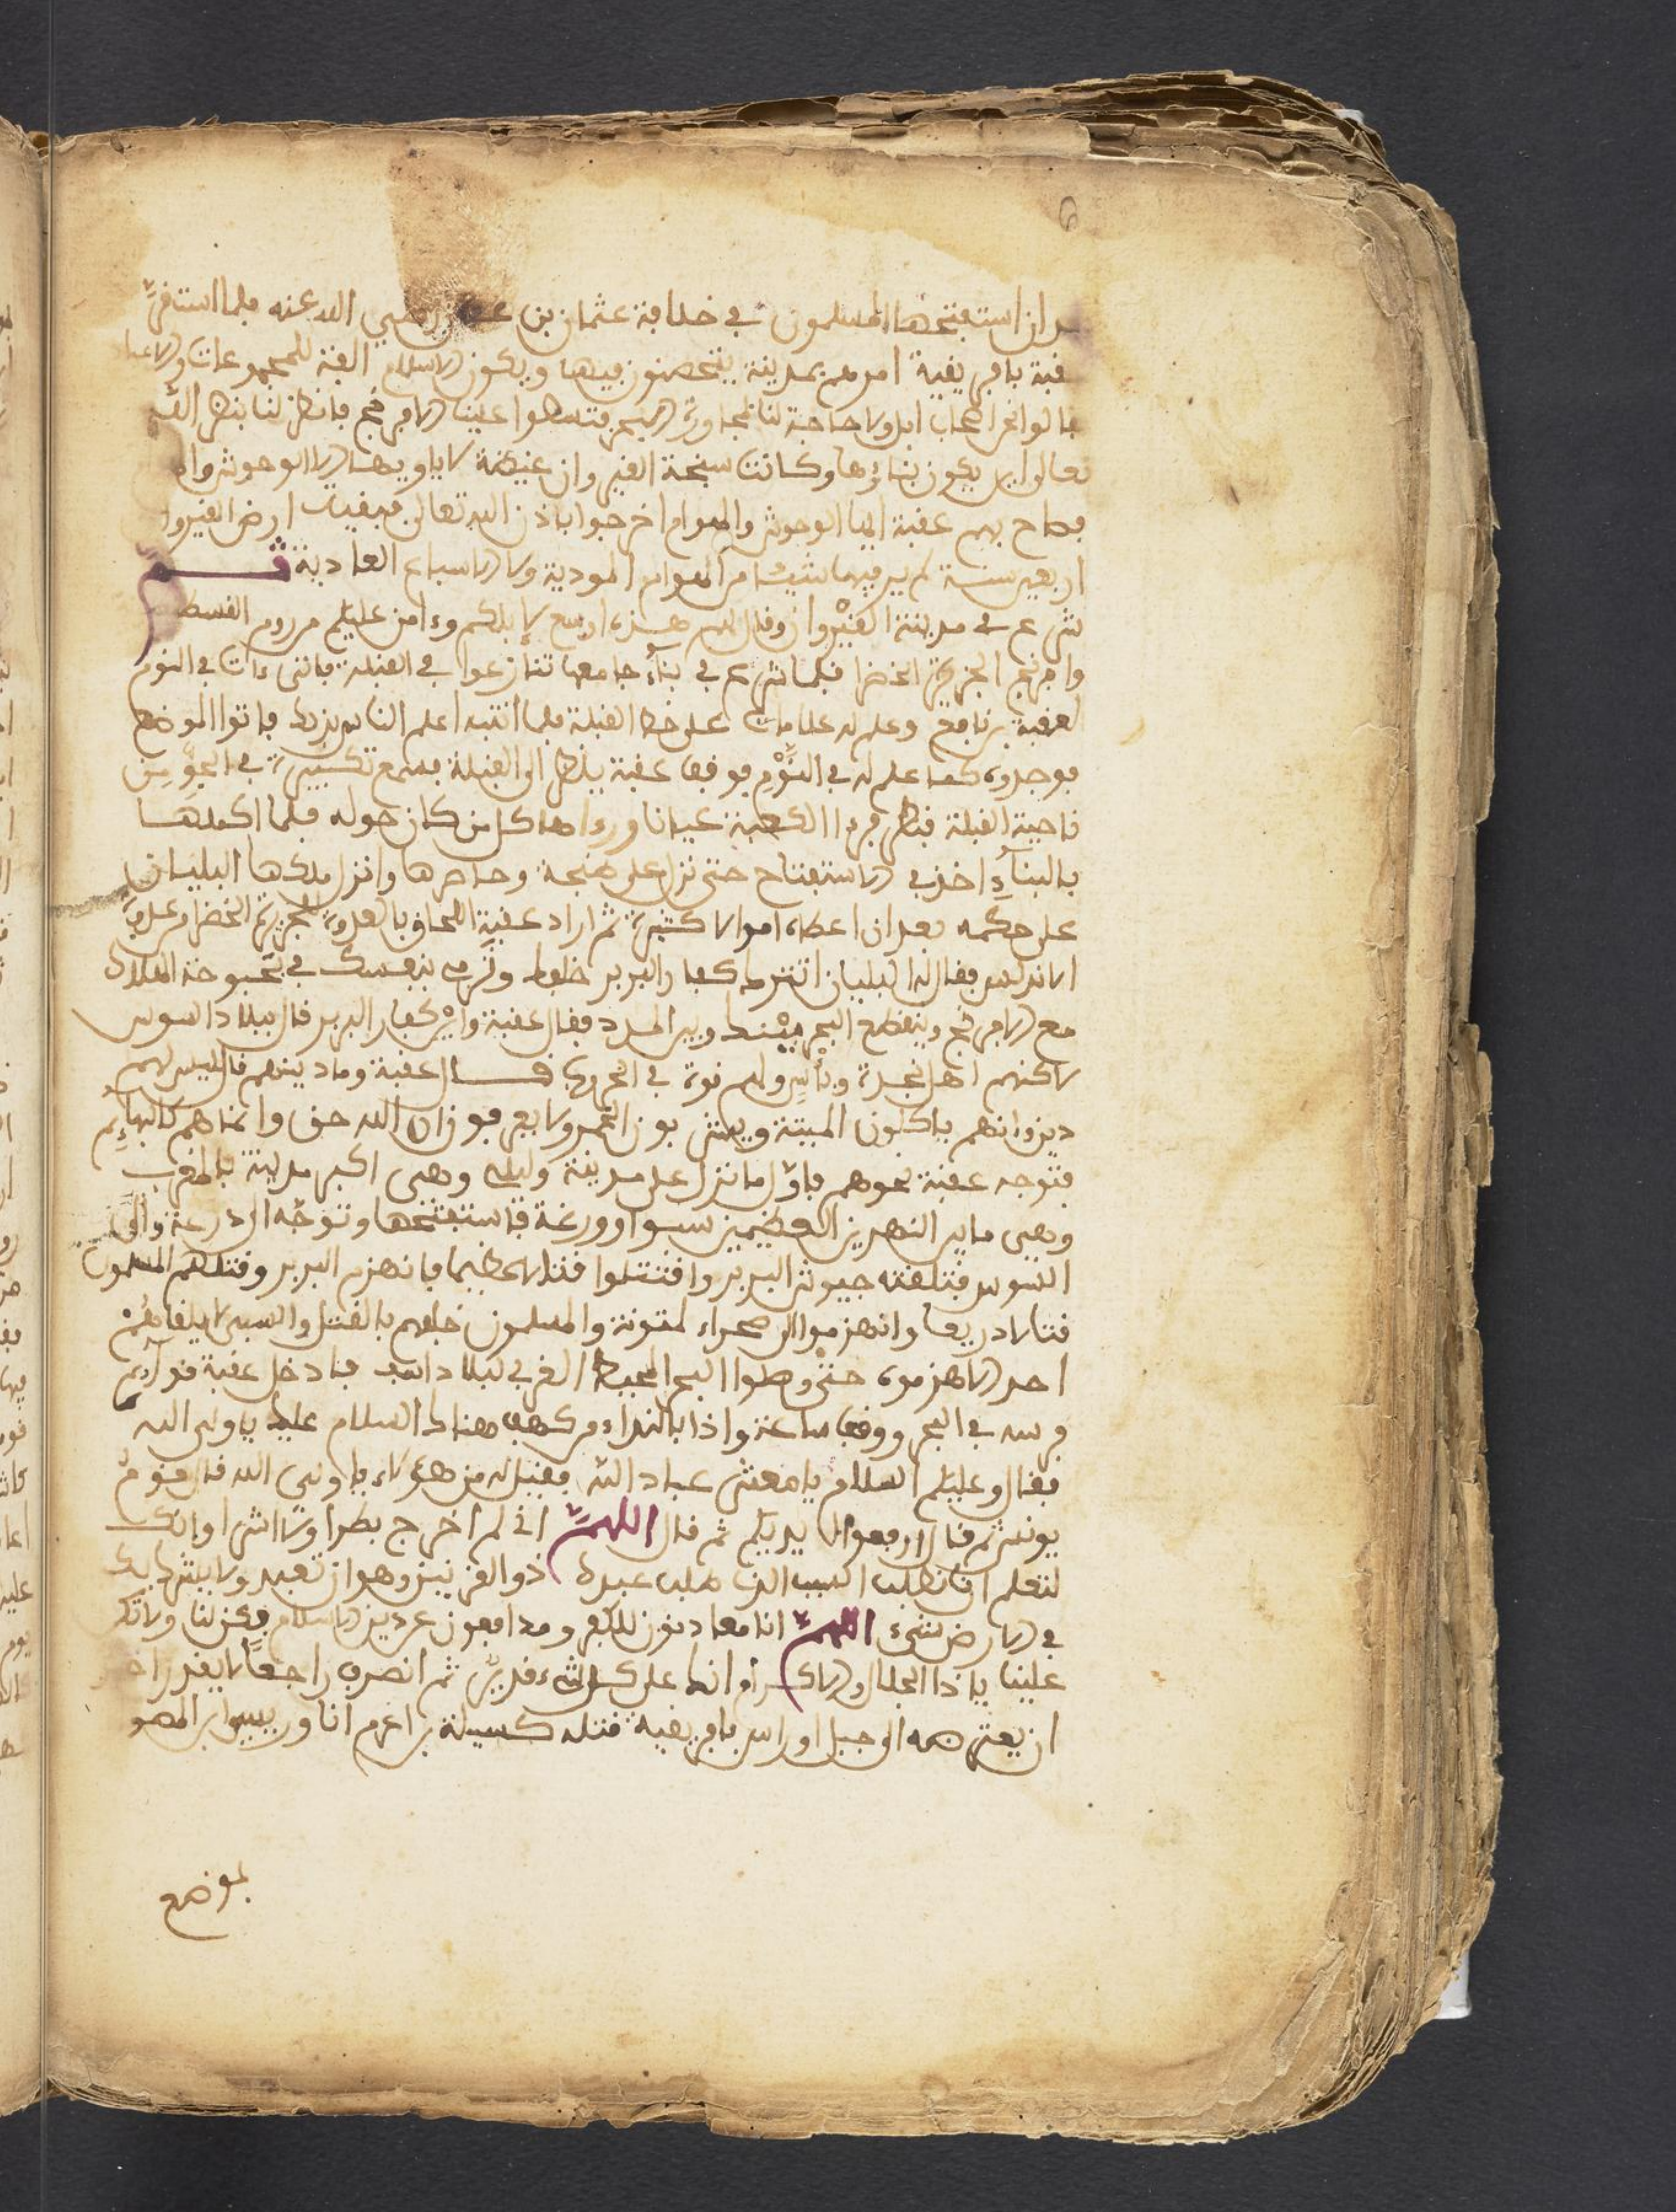 ان استفتحها المسلمون في خلافة عثمان بن عفان رضي الله عنه فلما استقرّ
عقبة بافريقية امرهم بمدينة يتحصنون فيها ويكون الاسلام للمجموعات والاعياد
فالوا نحن اصحاب ابل ولا حاجة لنا لمجاورة البحر فتسطوا علينا الافرنج فانظر لنا بنظر اللّه
تعالى اين يكون بناؤها وكانت سبخة القيروان غيضة لا ياويها الا الوحوش
فصاح بهم عقبة ايها الوحوش والهوام اخرجوا باذن الله تعالى فبقيت ارض القيروان
اربعين سنة لم ير فيها شيئا من الهوام المودية ولا الاسباع العادية ثم
شرع في مدينة القيْروان وقال لهم هذه اوسع لإبلكم وءامن عليكم من روم القسط
وافرنج الجزيرة الخضرا فلما شرع في بناء جامعها تنازعوا في القبلة فاتى ءات في النوم
لعقبة برنامج وعلم له علامات على خط القبلة فلما انتبه اعلم الناس بذلك فاتوا الموضع
فوجدوه كما علم له في النّوْمِ فوقف عقبة ينظر الى القبلة فسمع تكبيرة في الجوِّ مِن
ناحية القبلة فنظر فرءا الكعبة عيانا ورءاها كل من كان حوله فلما اكملها
بالبنآءِ اخذ في الاستفتاح حتى نزل على طنجة وحاصرها وانزل ملكها اليليان
على حكمه بعد ان اعطاه اموالا كثيرة ثم اراد عقبة اللحاق بالعدوة الجزيرة الخضرا من عدوة
الاندلس فقال له اليليان اتترك كفار البربر خلفك وترمى بنفسك في بحبوحة الهلاك
مع الافرنج وينقطع البحر بيْنك وبين المدد فقال عقبة واين كفار البربر قال ببلاد السوس
لاكنهم اهل نجدة وبأس ولهم قوة في الحروب قال عقبة وما دينهم قال ليس لهم
دين وانهم ياكلون الميتة ويشربون الخمر ولا يعرفون ان الله حق وانما هم كالبهائم
فتوجه عقبة نحوهم فاوّل ما نزل على مدينة وليلي وهي اكبر مدينة بالمغرب
وهي ما بين النهرين العظيمين سبوا وورغة فاستفتحها وتوجّه الى درعة والى
السوس فتلقته جيوش البربر واقتتلوا قتالا عظيما فانهزم البربر وقتلهم المسلمون
قتلا ذريعا وانهزموا الى صحراء لمتونة والمسلمون خلفهم بالقتل والسبي لا يلقاهُمْ
احد الا هزموه حتى وصلوا البحر المحيط الغربي لبلاد اسفى فادخل عقبة قوآئم
فرسه في البحر ووقف ساعة واذا بالنداء من كهف هناك السلام عليك يا ولى الله
فقال وعليكم السلام يا معشر عباد اللّه فقيل له من هؤلاء يا ولي الله قال قوم
يونس ثم قال ارفعوا ايديكم ثم قال اللهمّ اني لم اخرج بطرا ولا اشرا وانك
لتعلم انا نطلب السبب الذي طلب عبدك ذو القرنين وهو ان تعبد ولا يشرك بك
في الارض شيء اللهمّ انا معادون للكفر ومدافعون عن دين الاسلام فكن لنا ولا تكن
علينا يا ذا الجلال والاكرام انك على كل شيء قدير ثم انصرف راجعا لا يقدر احد
ان يعترضه الى جبل اوراس بافريقية قتله كسيلة بن اغرم
بموضع